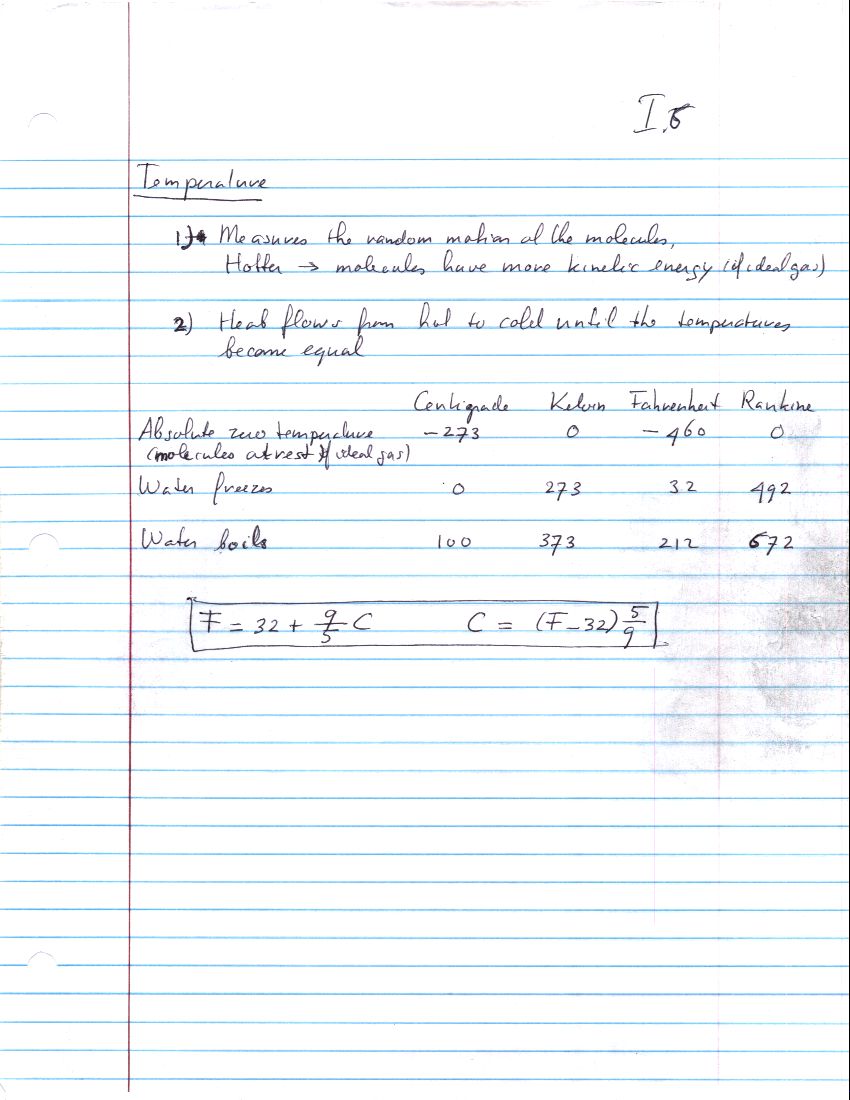 I.6
Temperature
1) Measures the random motion of the molecules,
Hotter → molecules have more kinetic energy (if ideal gas)
2) Heat flows from hot to cold until the temperatures
become equal
Centigrade Kelvin Fahrenheit Rankine
Absolute zero temperature -273 0 -460 0
(molecules at rest if ideal gas)
Water freezes 0 273 32 492
Water boils 100 373 212 672
F = 32 + 9/5 C C = (F-32) 5/9